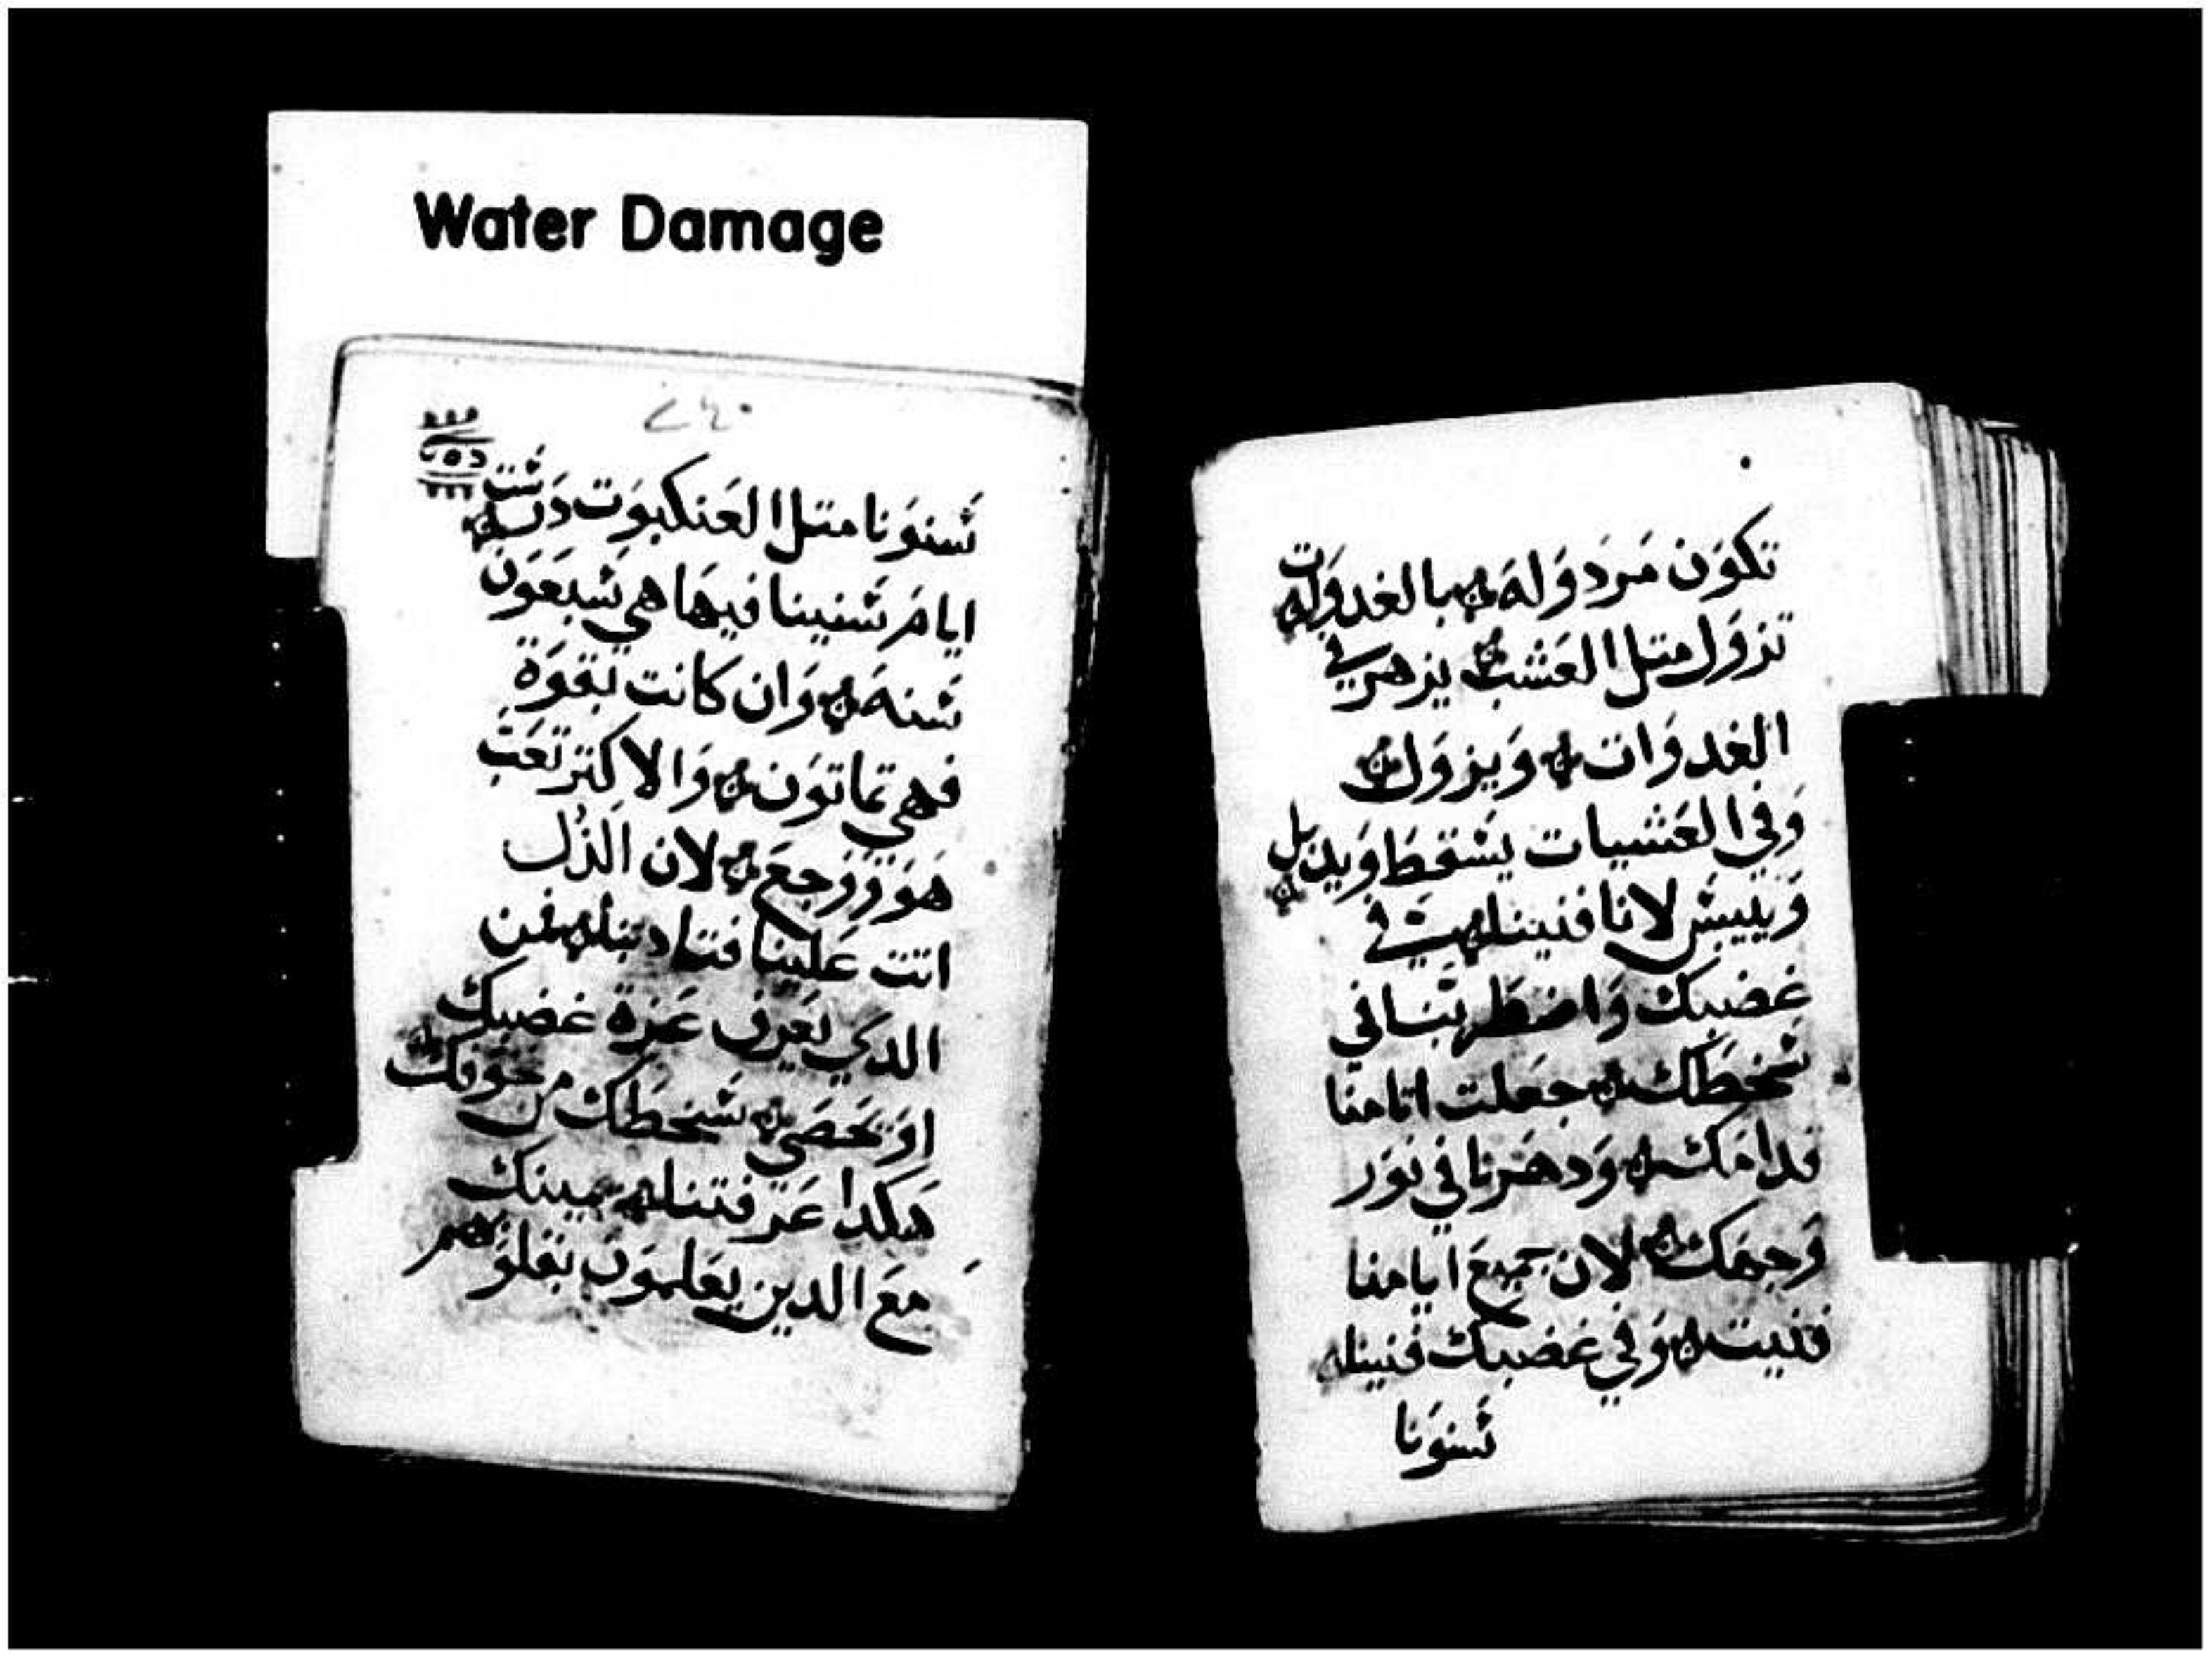 Water Damage
تكون مردوله بالغدوات
تزول متل العشب يزهر في
الغدوات ويزول
وفي العشيات يسقط ويدبل
وييبس لانا فنينا في
غضبك واضطربنا في
سخطك جعلت اتامنا
قدامك ودهرنا في نور
وجهك لان جميع ايامنا
فنيت وفي غضبك فنينا
سنونا
٢٤٠
سنونا متل العنكبوت درست
ايام سنينا فيها هي سبعون
سنه وان كانت بقوة
فهي تمانون والاكتر تعب
هو ووجع لان الذل
اتت علينا فتادبنا فمن
الدي يعرف عزة غضبك
او يحصي سخطك من خوفك
هكدا عرفنا يمينك
مع الدين يعلمون بقلوبهم